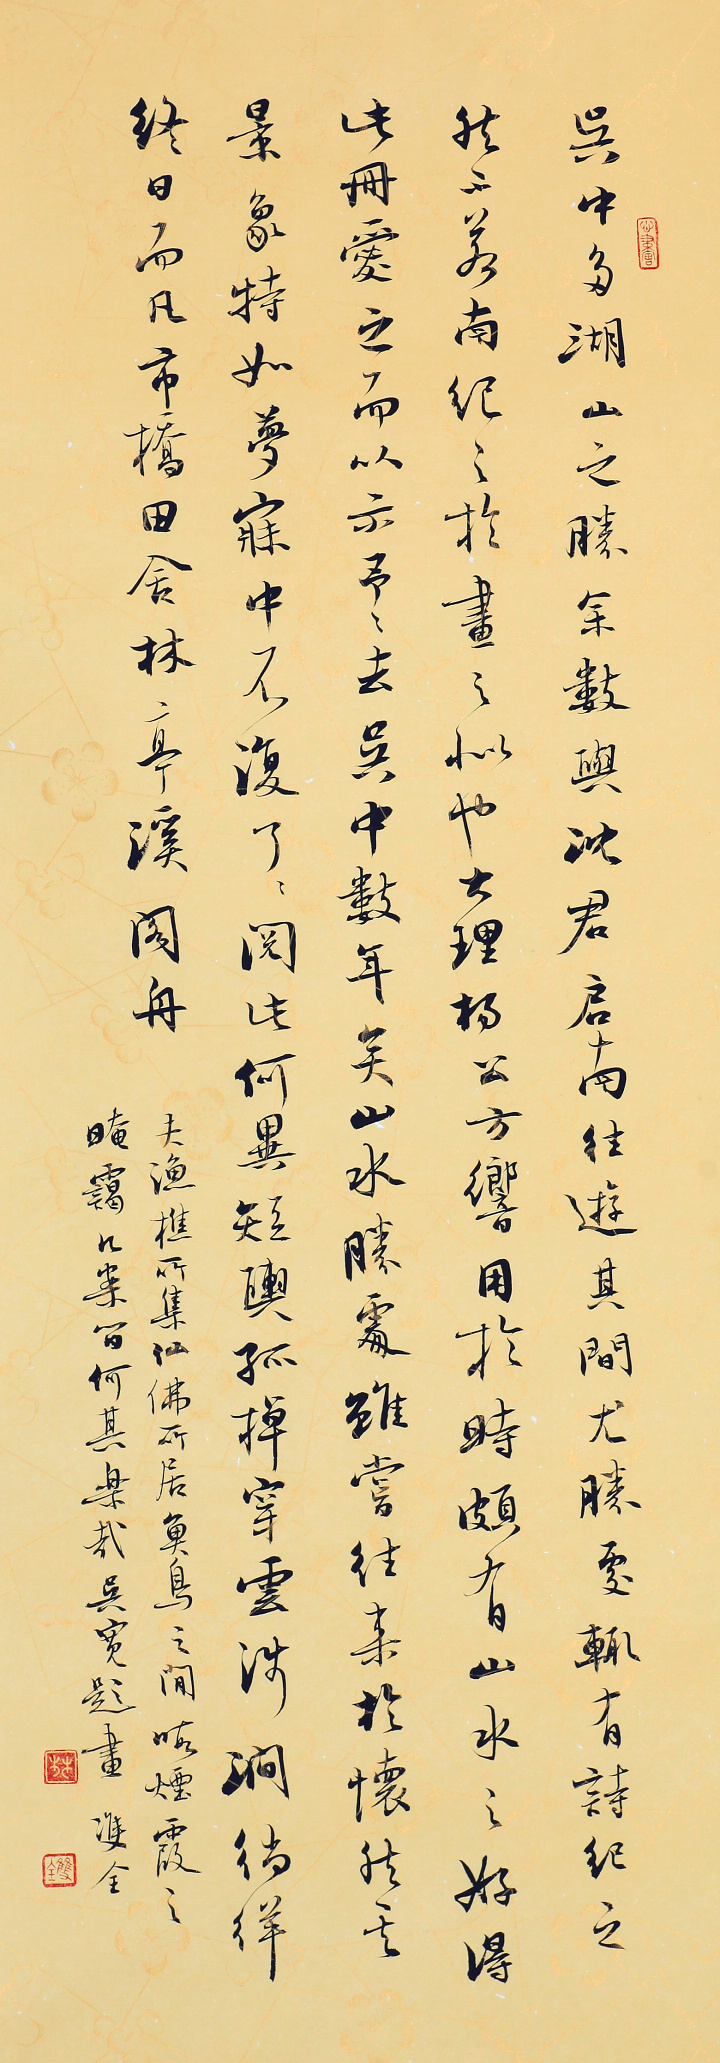 吳中多湖山之勝余數與沈君啟南往遊其間尤勝處輒有詩紀之
然不若南紀之於畫之似也大理楊公方嚮用於時頗有山水之好得
此冊愛之而以示予予去吳中數年矣山水勝處雖嘗往來於懷然其
景象特如夢寐中不復了了閱此何異短輿孤棹穿雲涉澗徜徉
終日而凡市橋田舍林亭溪閣舟
夫漁樵所集仙佛所居魚鳥之間晦煙霞之
晻靄凡案間何其樂哉吳寬題畫 雙全